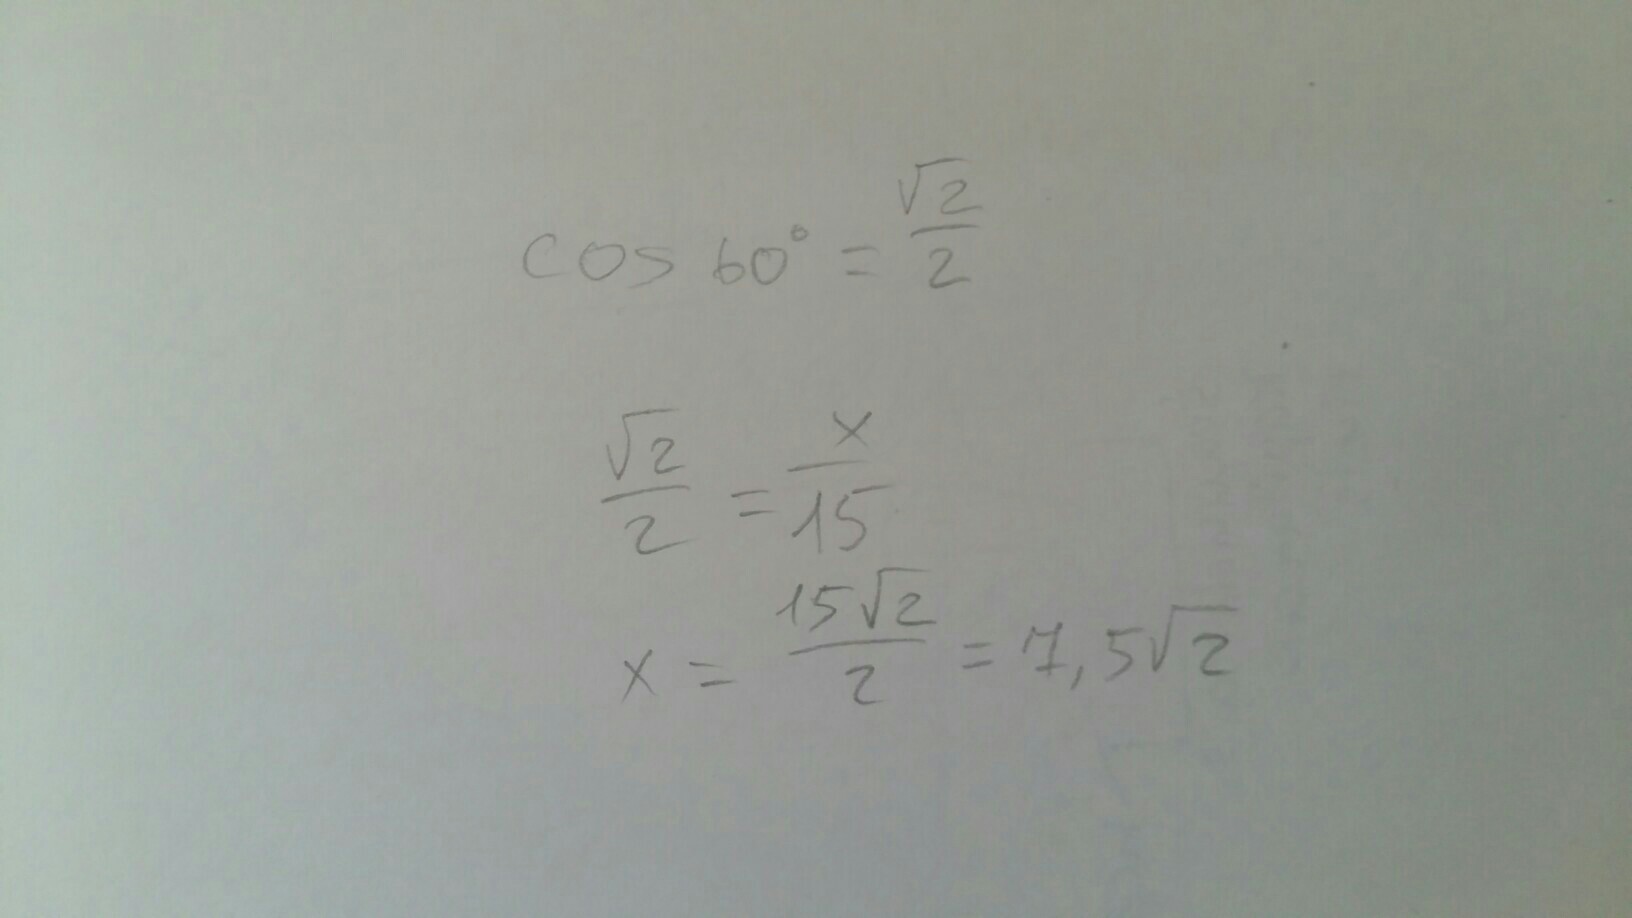 cos 60° = √2/2
√2/2 = x/15
x = 15√2/2 = 7,5√2